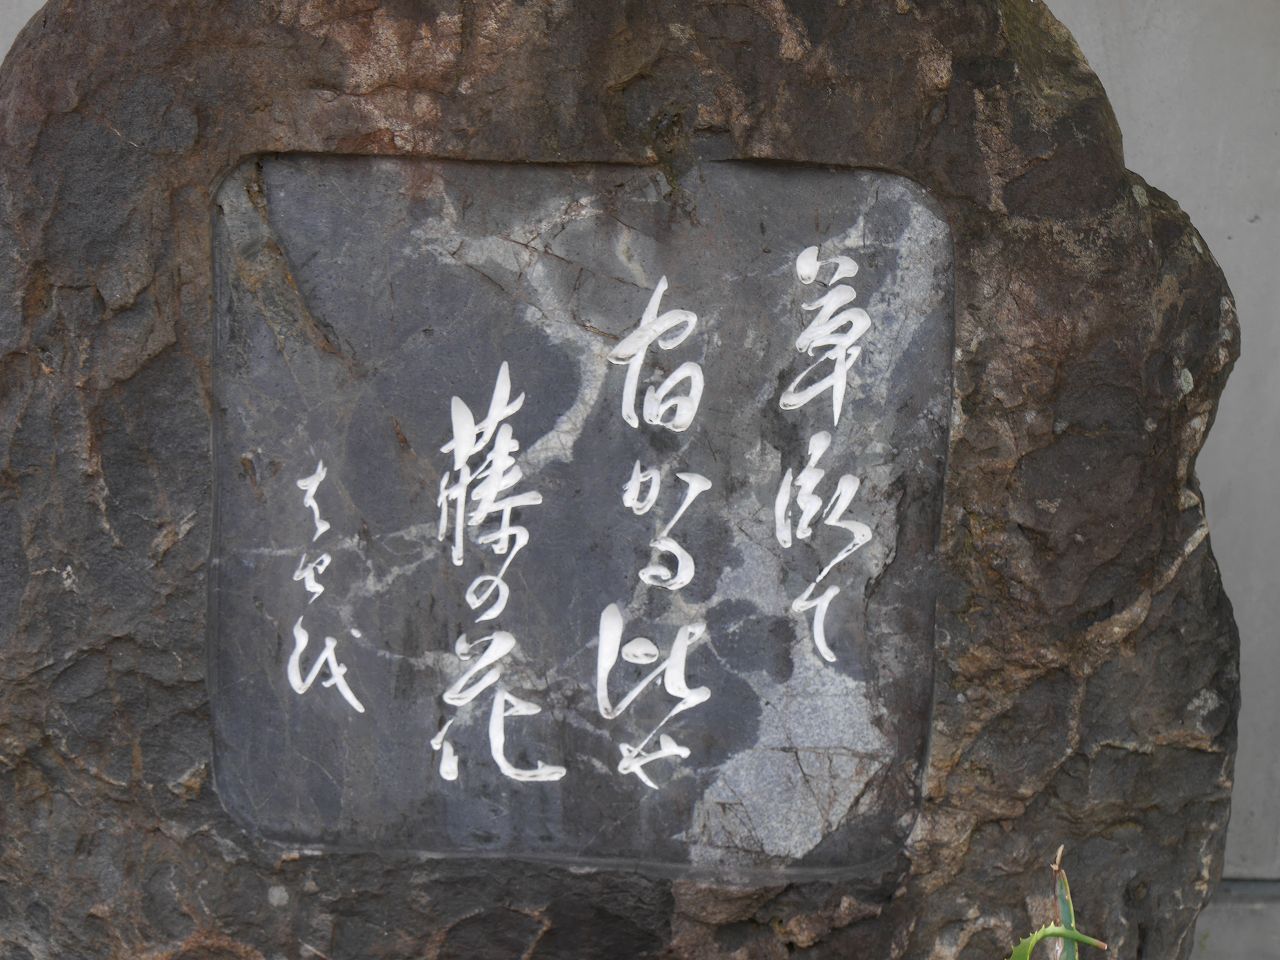 草臥て
宿かる比や
藤の花
はせを